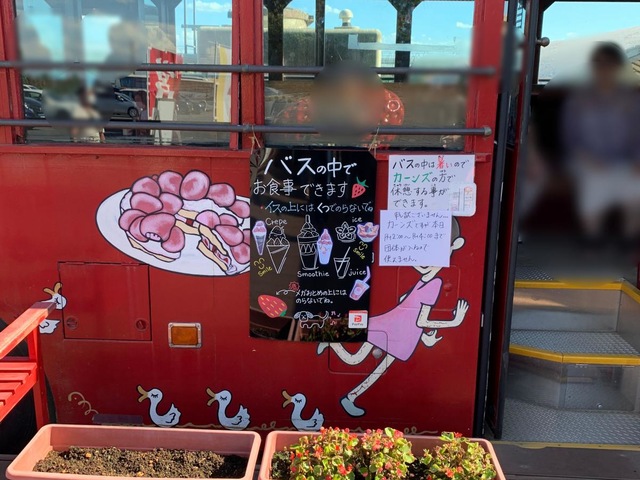 バスの中で
お食事できます
イスの上には くつでのらないで。
Crepe
ice
Smile
Smile
Smoothie
juice
のらないでね。
PayPay
バスの中は暑いので
カーンズの方で
休憩する事が
できます。
申し訳ございません。
カーンズですが本日
団体が入るので
使えません。